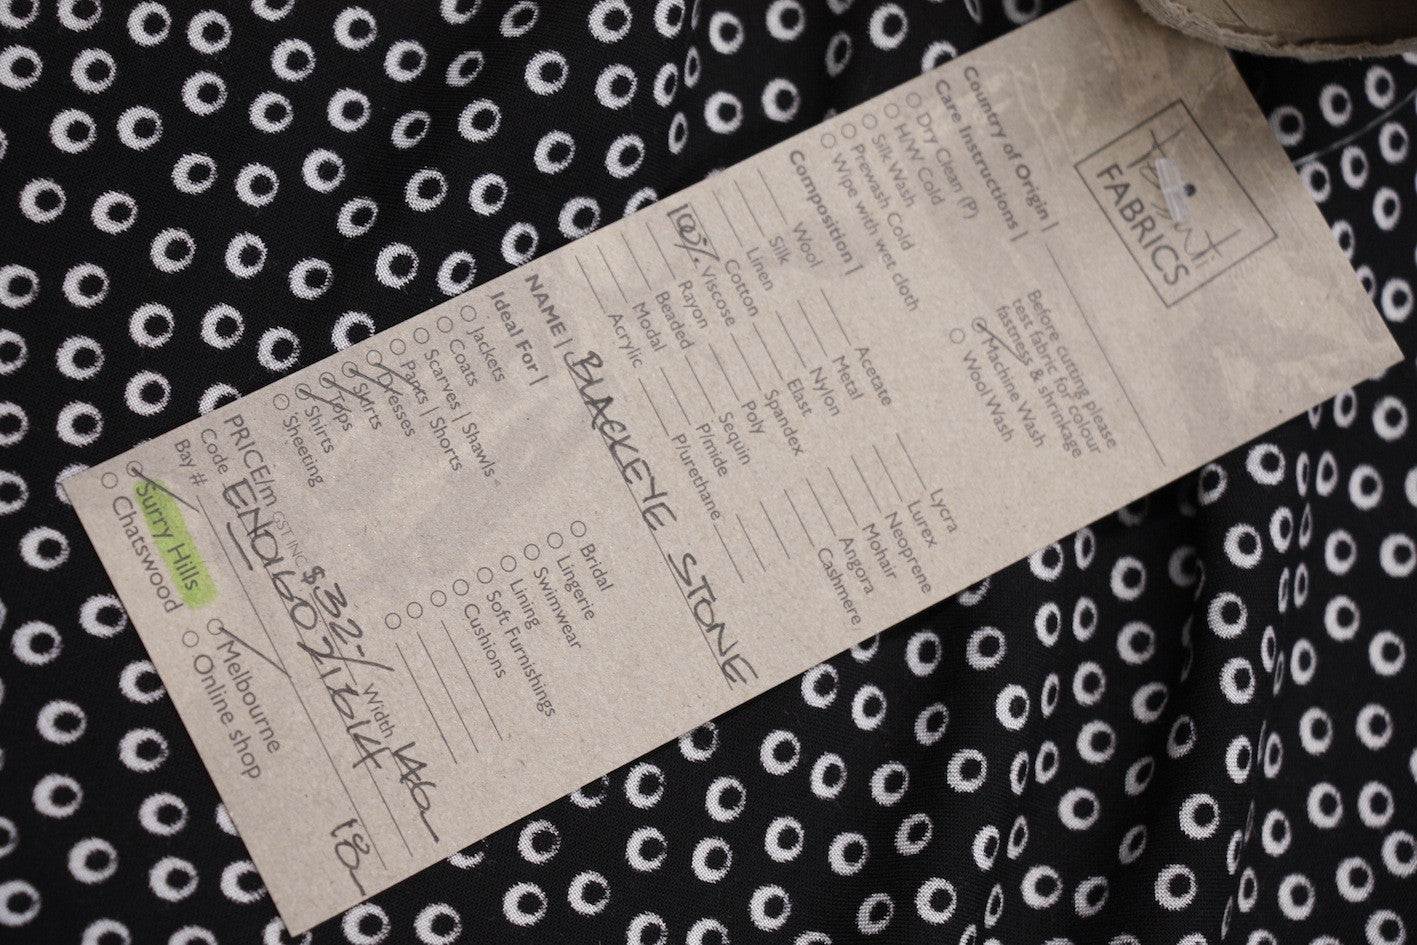 Tessuti
FABRICS
Country of Origin |
Care Instructions |
Dry Clean (P)
H/W Cold
Silk Wash
Prewash Cold
Wipe with wet cloth
Before cutting please
test fabric for colour
fastness & shrinkage
Machine Wash
Wool Wash
Composition |
Wool Acetate Lycra
Silk Metal Lurex
Linen Nylon Neoprene
Cotton Elast Mohair
100% Viscose Spandex Angora
Rayon Poly Cashmere
Beaded Sequin
Modal P/mide
Acrylic P/urethane
NAME | BLACKEYE STONE
Ideal For |
Jackets Bridal
Coats Lingerie
Scarves | Shawls Swimwear
Pants | Shorts Lining
Dresses Soft Furnishings
Skirts Cushions
Tops
Shirts
Sheeting
PRICE/m GST INC $32-/ Width 146
Code
Bay #
Surry Hills Melbourne
Chatswood Online shop